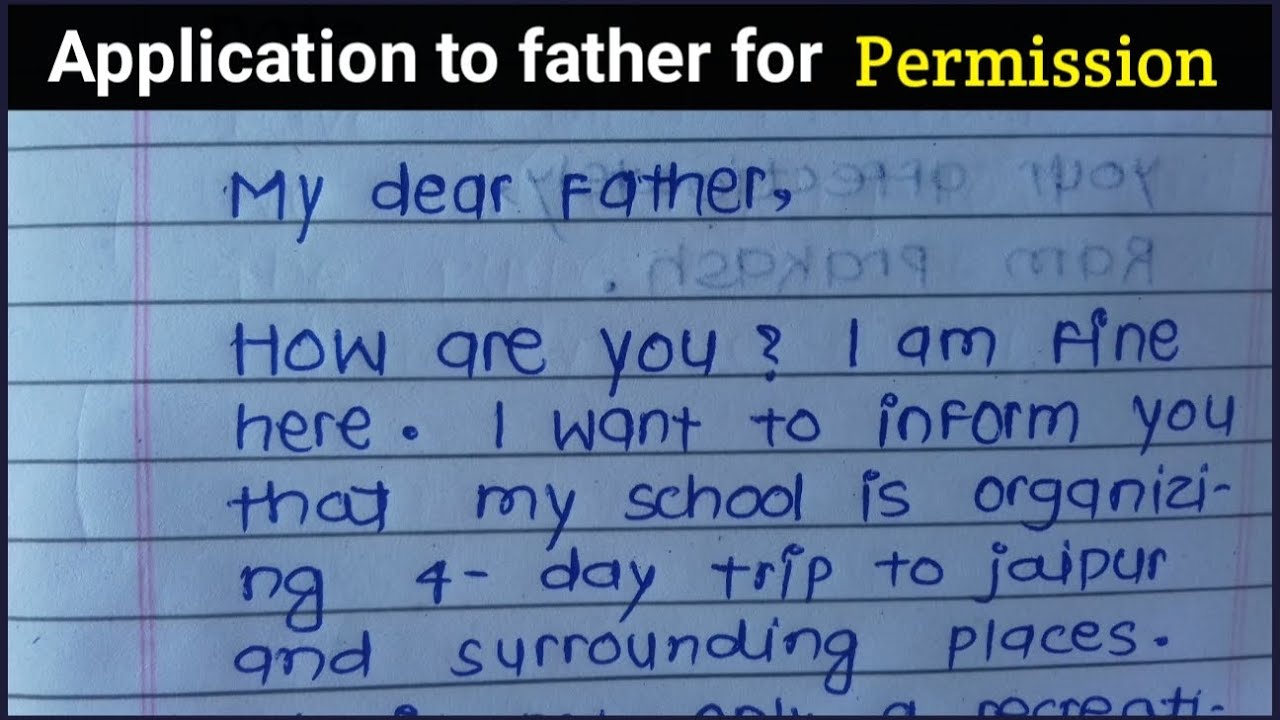 Application to father for Permission
My dear Father,
How are you? I am fine
here. I want to inform you
that my school is organizi-
ng 4- day trip to jaipur
and surrounding places.
only a recreati-